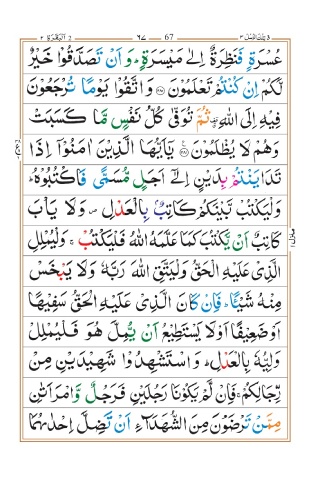 تِلْكَ الرُّسُلُ ٣ ٦٧ 67 اَلْبَقَرَة ٢ 2
عُسْرَةٍ فَنَظِرَةٌ اِلٰى مَيْسَرَةٍ ؕ وَ اَنْ تَصَدَّقُوْا خَيْرٌ
لَّكُمْ اِنْ كُنْتُمْ تَعْلَمُوْنَ ﴿۲۸۰﴾ وَ اتَّقُوْا يَوْمًا تُرْجَعُوْنَ
فِيْهِ اِلَى اللّٰهِ ۗ ثُمَّ تُوَفّٰى كُلُّ نَفْسٍ مَّا كَسَبَتْ
وَهُمْ لَا يُظْلَمُوْنَ ﴿۲۸۱﴾ يٰۤاَيُّهَا الَّذِيْنَ اٰمَنُوْۤا اِذَا
تَدَايَنْتُمْ بِدَيْنٍ اِلٰۤى اَجَلٍ مُّسَمًّى فَاكْتُبُوْهُ ؕ
وَلْيَكْتُبْ بَّيْنَكُمْ كَاتِبٌۢ بِالْعَدْلِ ۪ وَلَا يَاْبَ
كَاتِبٌ اَنْ يَّكْتُبَ كَمَا عَلَّمَهُ اللّٰهُ فَلْيَكْتُبْ ۚ وَلْيُمْلِلِ
الَّذِيْ عَلَيْهِ الْحَقُّ وَلْيَتَّقِ اللّٰهَ رَبَّهٗ وَلَا يَبْخَسْ
مِنْهُ شَيْـًٔا ؕ فَاِنْ كَانَ الَّذِيْ عَلَيْهِ الْحَقُّ سَفِيْهًا
اَوْ ضَعِيْفًا اَوْ لَا يَسْتَطِيْعُ اَنْ يُّمِلَّ هُوَ فَلْيُمْلِلْ
وَلِيُّهٗ بِالْعَدْلِ ؕ وَ اسْتَشْهِدُوْا شَهِيْدَيْنِ مِنْ
رِّجَالِكُمْ ۚ فَاِنْ لَّمْ يَكُوْنَا رَجُلَيْنِ فَرَجُلٌ وَّ امْرَاَتٰنِ
مِمَّنْ تَرْضَوْنَ مِنَ الشُّهَدَآءِ اَنْ تَضِلَّ اِحْدٰىهُمَا